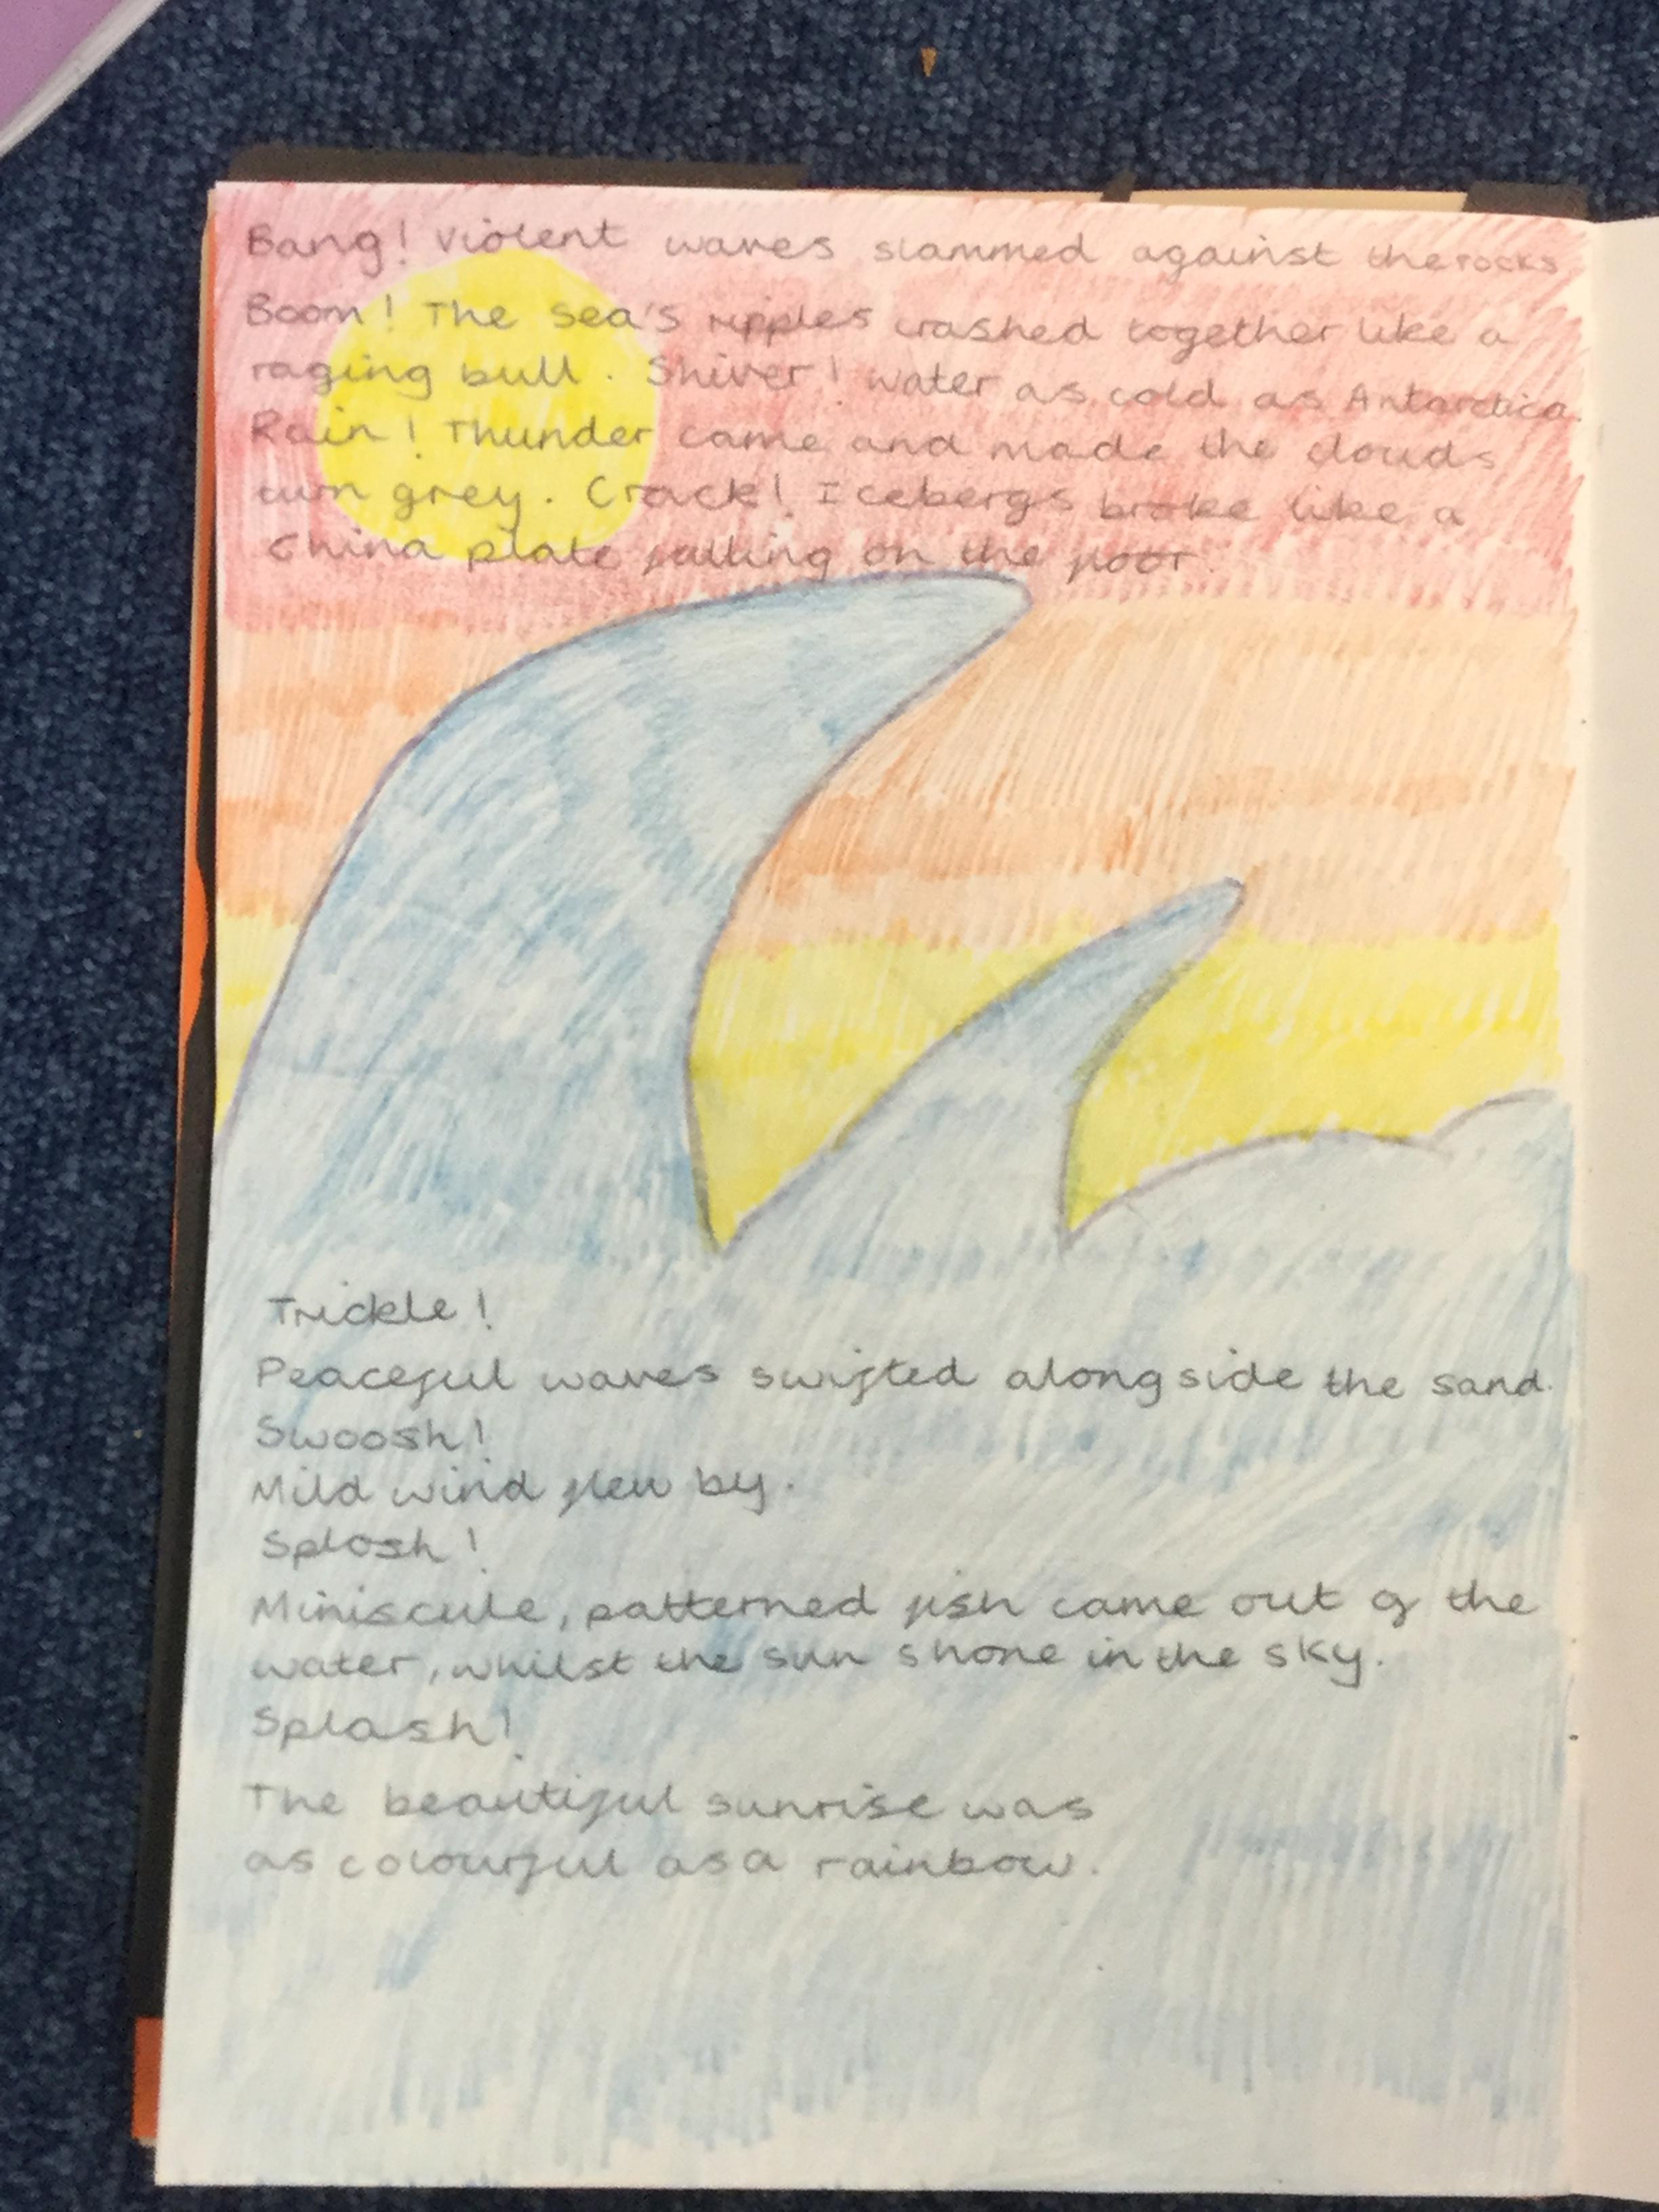 Bang! Violent waves slammed against the rocks
Boom! The sea's ripples crashed together like a
raging bull. Shiver! Water as cold as Antarctica.
Rain! Thunder came and made the clouds
turn grey. Crack! Icebergs broke like a
China plate falling on the floor.
Trickle!
Peaceful waves swifted alongside the sand.
Swoosh!
Mild wind flew by.
Splosh!
Miniscule, patterned fish came out of the
water, whilst the sun shone in the sky.
Splash!
The beautiful sunrise was
as colourful as a rainbow.